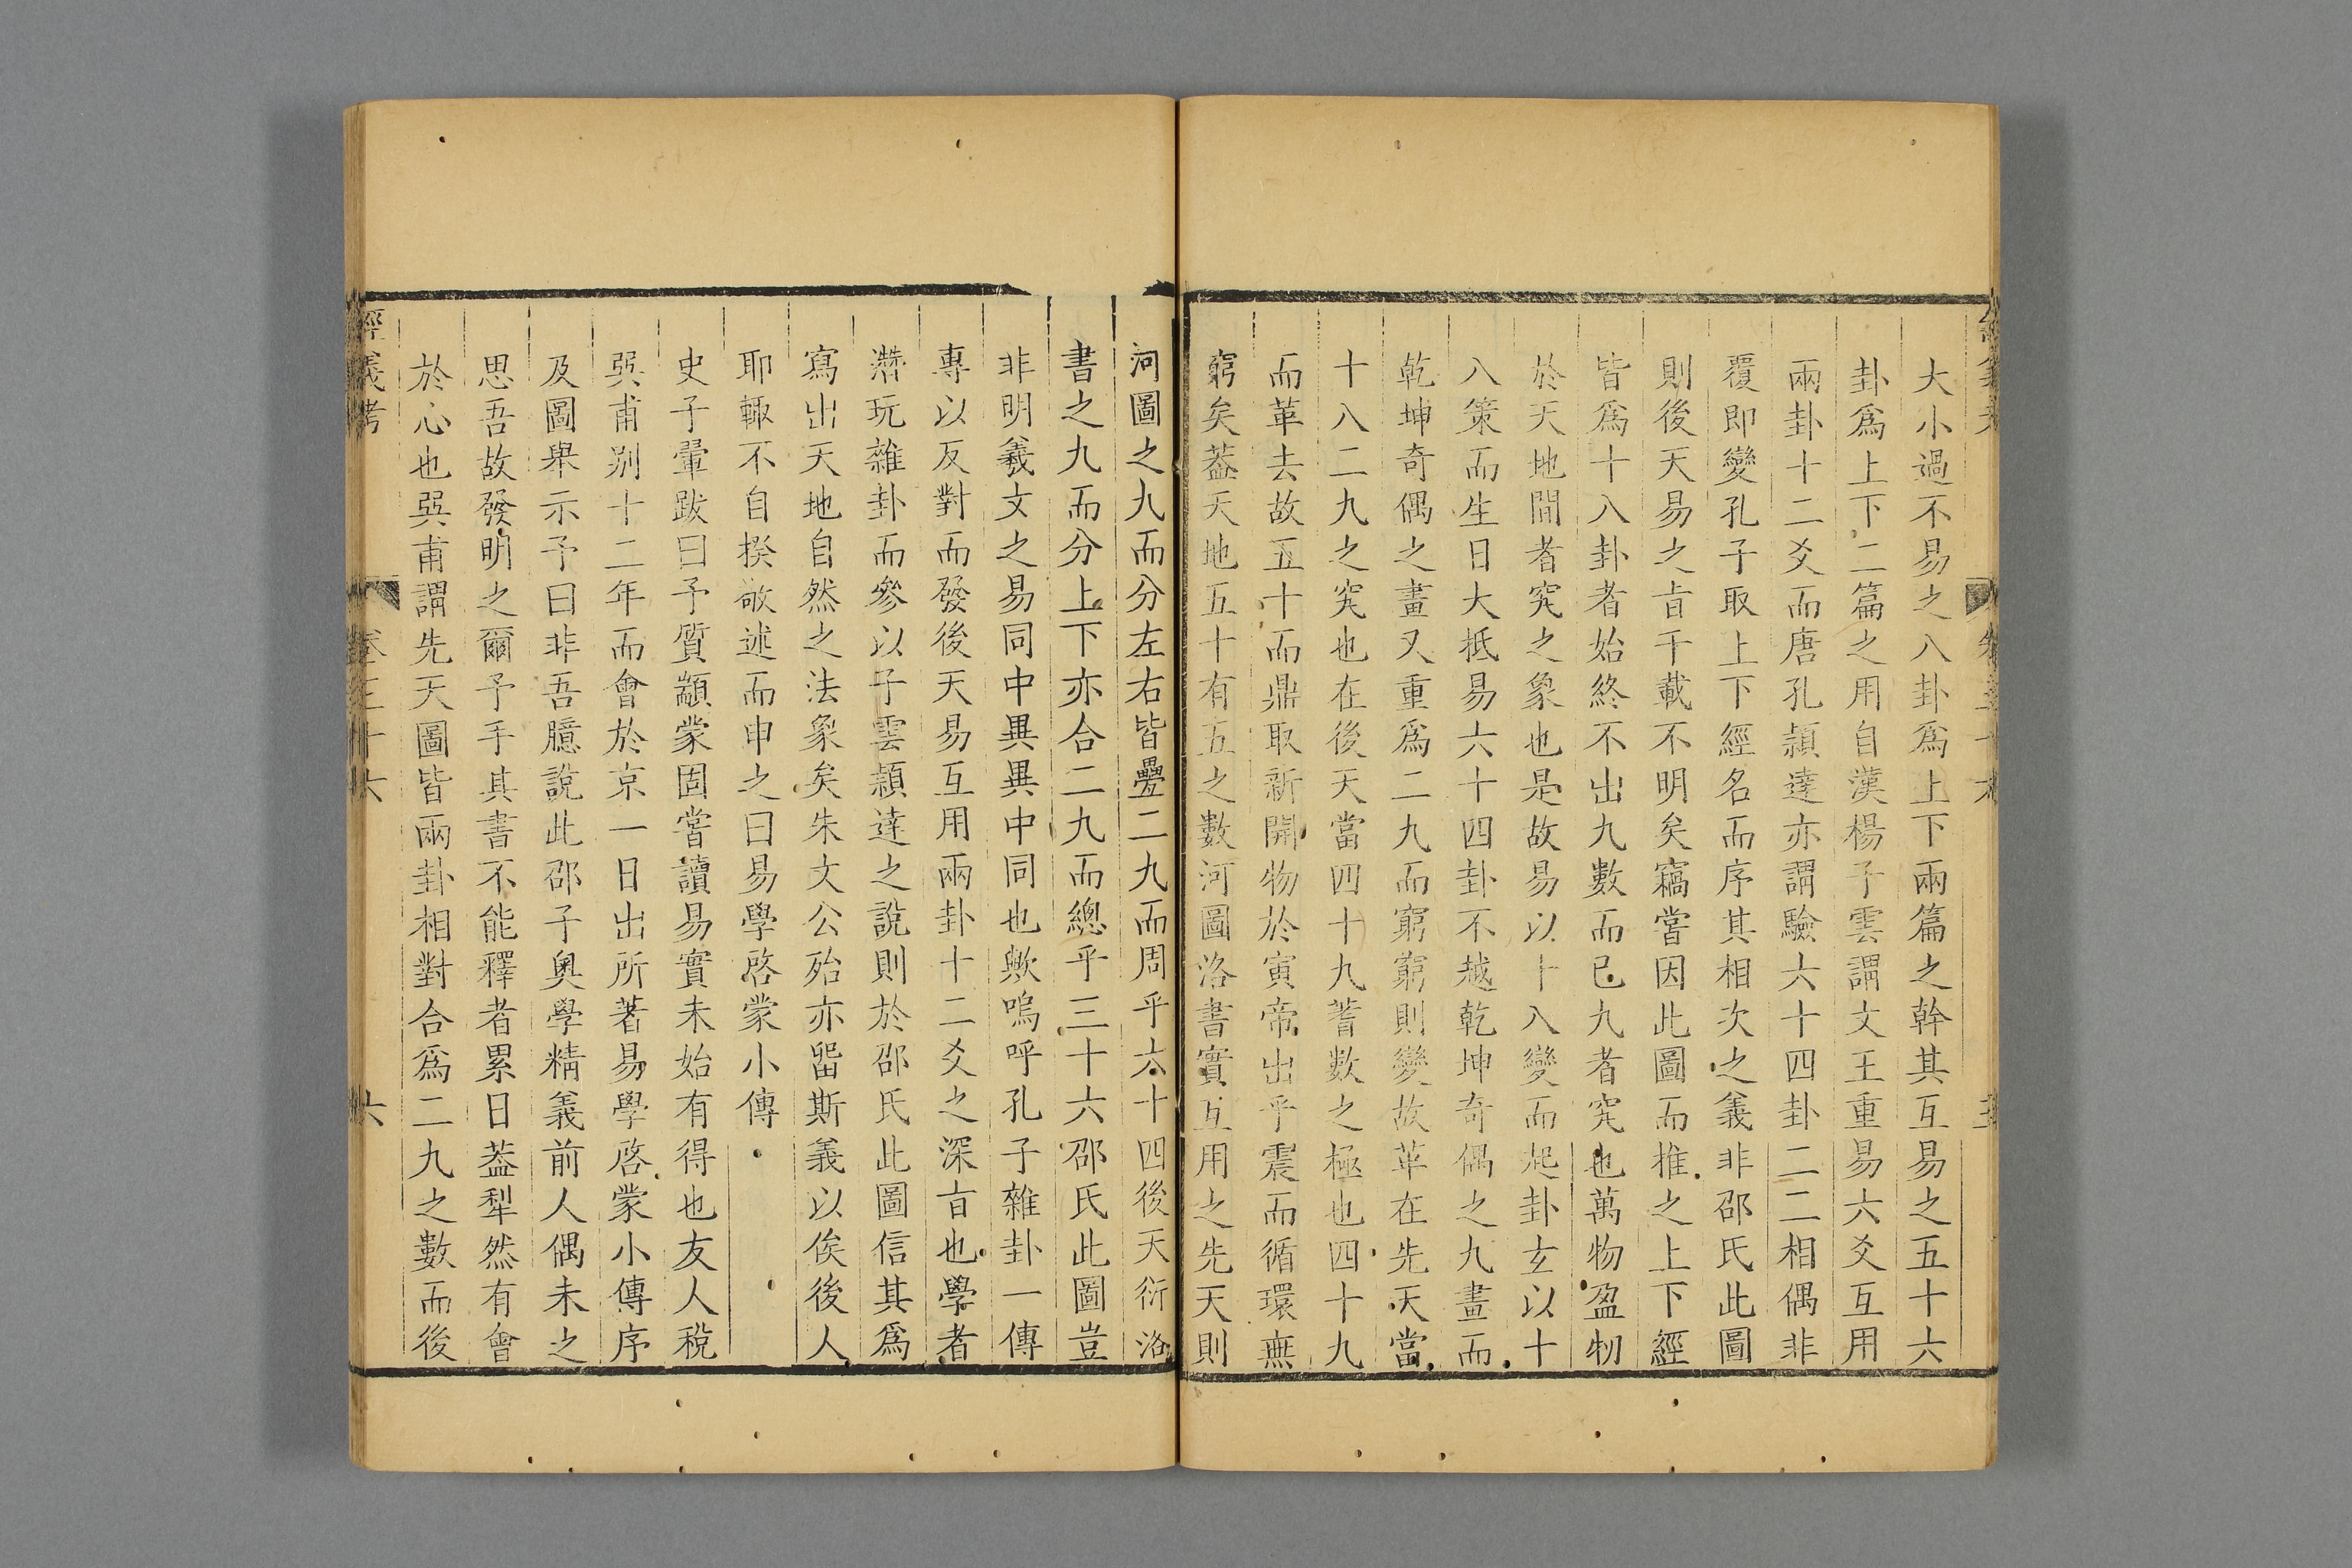 大小過不易之八卦爲上下兩篇之幹其互易之五十六
卦爲上下二篇之用自漢楊子雲謂文王重易六爻互用
兩卦十二爻而唐孔頴達亦謂驗六十四卦二二相偶非
覆即變孔子取上下經名而序其相次之義非邵氏此圖
則後天易之㫖千載不明矣竊嘗因此圖而推之上下經
皆爲十八卦者始終不出九數而已九者究也萬物盈物
於天地間者究之象也是故易以十八變而起卦玄以十
八策而生日大抵易六十四卦不越乾坤奇偶之九畫而
乾坤奇偶之畫又重爲二九而窮窮則變故革在先天當
十八二九之究也在後天當四十九蓍數之極也四十九
而革去故五十而鼎取新開物於寅帝出乎震而循環無
窮矣葢天地五十有五之數河圖洛書實互用之先天則
河圖之九而分左右皆疊二九而周乎六十四後天衍洛
書之九而分上下亦合二九而總乎三十六邵氏此圖豈
非明羲文之易同中異異中同也歟嗚呼孔子雜卦一傳
專以反對而發後天易互用兩卦十二爻之深㫖也學者
濳玩雜卦而參以子雲頴達之說則於邵氏此圖信其爲
寫出天地自然之法象矣朱文公殆亦留斯義以俟後人
耶輒不自揆敬述而申之曰易學啓蒙小傳
史子翬跋曰予質顓蒙固嘗讀易實未始有得也友人稅
巽甫别十二年而會於京一日出所著易學啓蒙小傳序
及圖舉示予曰非吾臆說此邵子奥學精義前人偶未之
思吾故發明之爾予手其書不能釋者累日葢犁然有會
於心也巽甫謂先天圖皆兩卦相對合爲二九之數而後
經義考
卷三十六
六